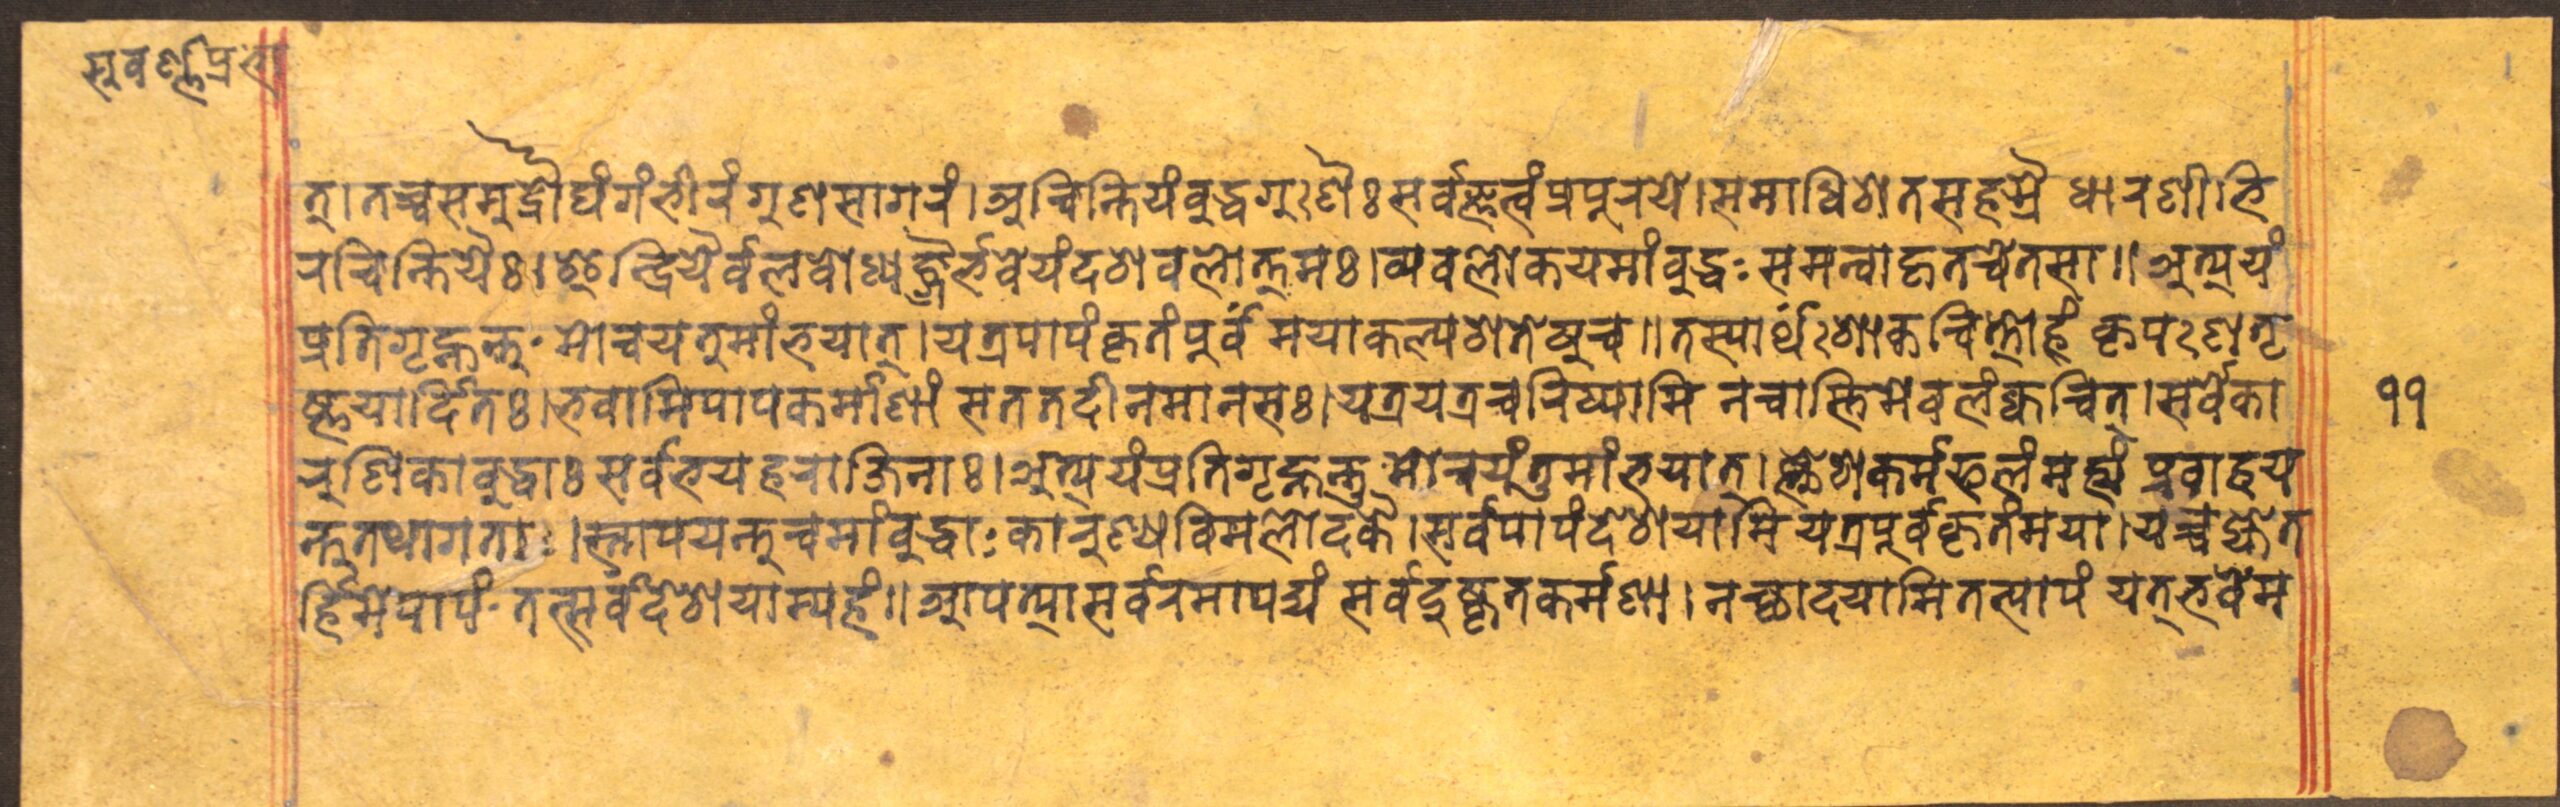 सुवर्ण्णप्रभा
त्। तच्चसमुद्रौघंगंभीरंगुणसागरं। अचिन्तियंबुद्धगुःणैः सर्वज्ञत्वंप्रपुरये। समाधिशेतसहस्रै धारणीभि
रचिन्तियैः। इन्द्रियैर्वलबोध्यङ्गैर्भवेयंदशेवलोत्तमः। व्यवलोकयमांबुद्धः समन्वाहृतचेतसा॥ अत्ययं
प्रतिगृह्नन्तु॰ मोचयतुमांभयात्। यत्रपापंकृतंपुर्वं मयाकल्पशेतेषुच॥ तस्यार्थंःशोकचित्तोहं कृपःणतृ
ष्णयार्दितः। भवामिपापकर्माणां सततदीनमानसः। यत्रयत्रचरिष्यामि नचास्तिमेवलंक्वचित्। सर्वेका
रुणिकाबुद्धाः सर्वभयहराजिनाः। अत्ययंप्रतिगृह्नन्तु मोचयंतुमांभयात्। क्लेशकर्मफलंमह्यं प्रवाहय
न्तुतथागताः। स्नापयन्तुचमांबुद्धाः कारुण्यविमलोदकै। सर्वपापंदेशेयामि यत्रपूर्वकृतंमया। यच्चह्येत
र्हिमेपापं॰ तत्सर्वंदेशेयाम्यहं॥ आपत्यासर्वरमापद्यं सर्वदुष्कृतकर्मणा। नच्छादयामितत्पापं यत्भवेम
११